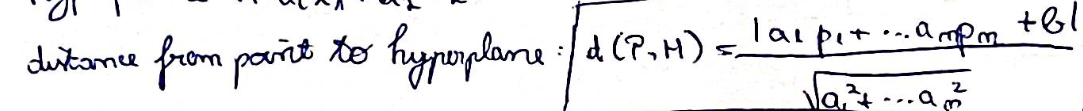 distance from point to hyperplane : d(P,H) = |a₁p₁+...aₘpₘ +b| / √a₁²+...aₘ²